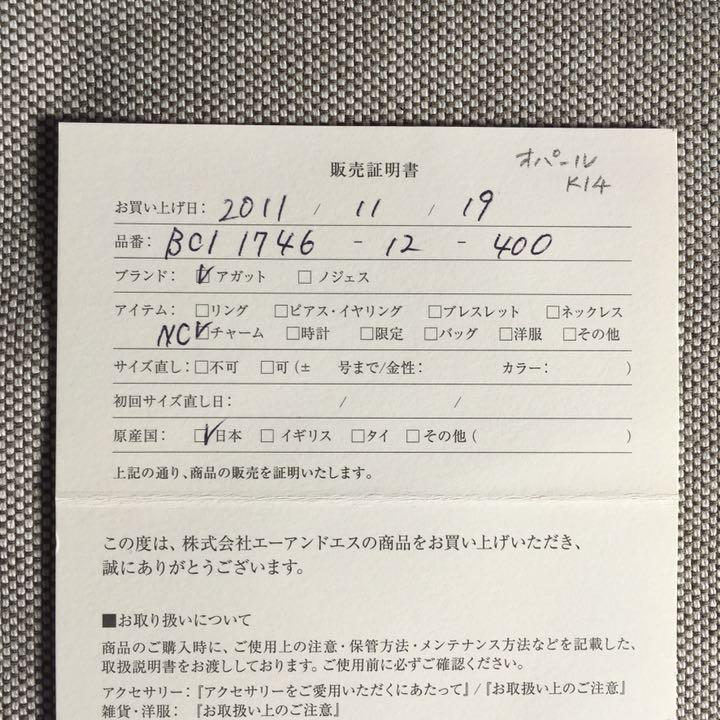 オパール
K14
販売証明書
お買い上げ日: 2011 / 11 / 19
品番: BC1 1746 - 12 - 400
ブランド: ☑アガット □ノジェス
アイテム: □リング □ピアス・イヤリング □ブレスレット □ネックレス
NC ☑チャーム □時計 □限定 □バッグ □洋服 □その他
サイズ直し: □不可 □可(± 号まで/金性: カラー: )
初回サイズ直し日: / /
原産国: ☑日本 □イギリス □タイ □その他( )
上記の通り、商品の販売を証明いたします。
この度は、株式会社エーアンドエスの商品をお買い上げいただき、
誠にありがとうございます。
■お取り扱いについて
商品のご購入時に、ご使用上の注意・保管方法・メンテナンス方法などを記載した、
取扱説明書をお渡ししております。ご使用前に必ずご確認ください。
アクセサリー:『アクセサリーをご愛用いただくにあたって』/『お取扱い上のご注意』
雑貨・洋服: 『お取扱い上のご注意』